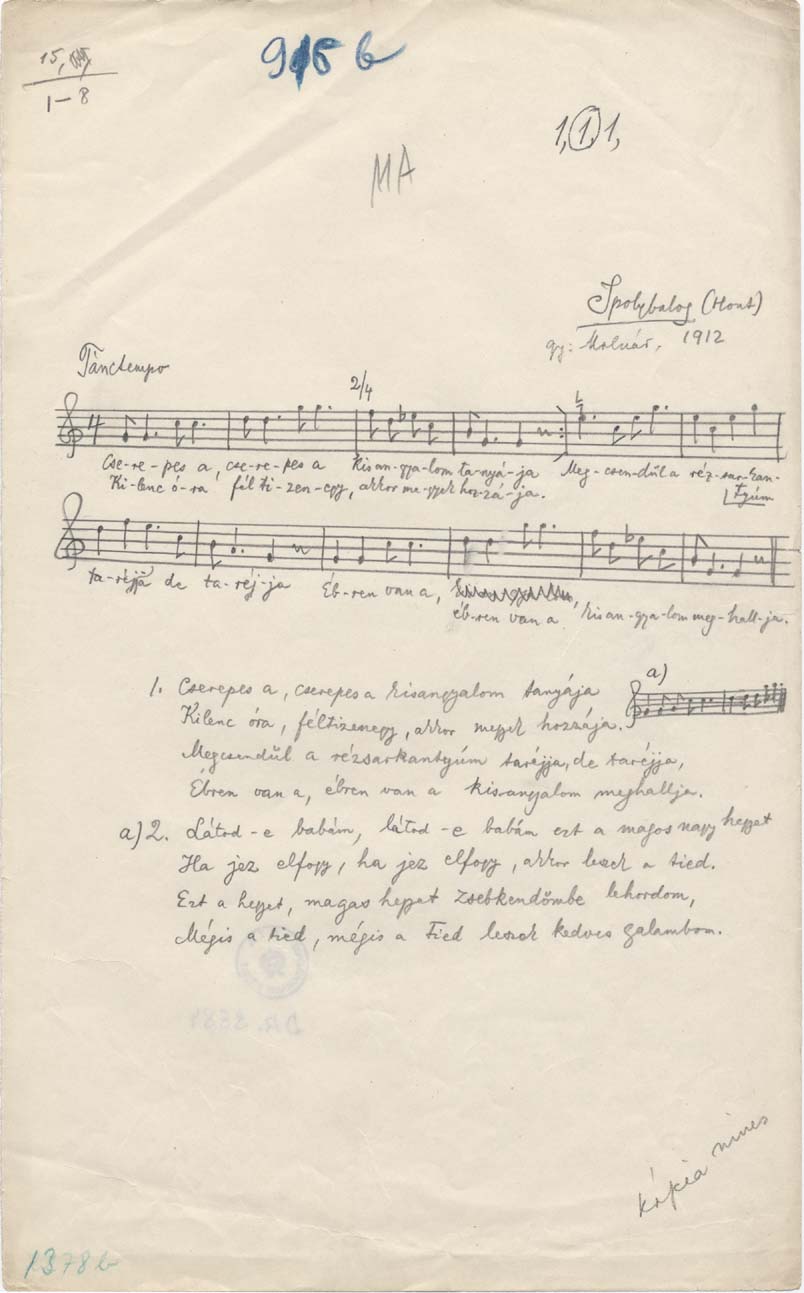 15,
1–8
915 b
1, 1, 1,
MA
Ipolybalog (Hont)
gy: Molnár, 1912
Tánctempo
2/4
4
Cse-re-pes a, cse-re-pes a kisan-gyalom ta-nyá-ja Meg-csen-dűl a réz-sar-kan-
Ki-lenc ó-ra fél ti-zen-egy, akkor me-gyek hoz-zá-ja.
tyúm
ta-réjja de ta-réj-ja Éb-ren van a,
éb-ren van a kis an-gya-lom meg-hall-ja.
a)
1. Cserepes a, cserepes a kisangyalom tanyája
Kilenc óra, féltizenegy, akkor megyek hozzája.
Megcsendűl a rézsarkantyúm taréjja, de taréjja,
Ébren van a, ébren van a kisangyalom meghallja.
a) 2. Látod-e babám, látod-e babám ezt a magos nagy hegyet
Ha jez elfogy, ha jez elfogy, akkor leszek a tied.
Ezt a hegyet, magas hegyet zsebkendőmbe lehordom,
Mégis a tied, mégis a Tied leszek kedves galambom.
kópia nincs
1378 b